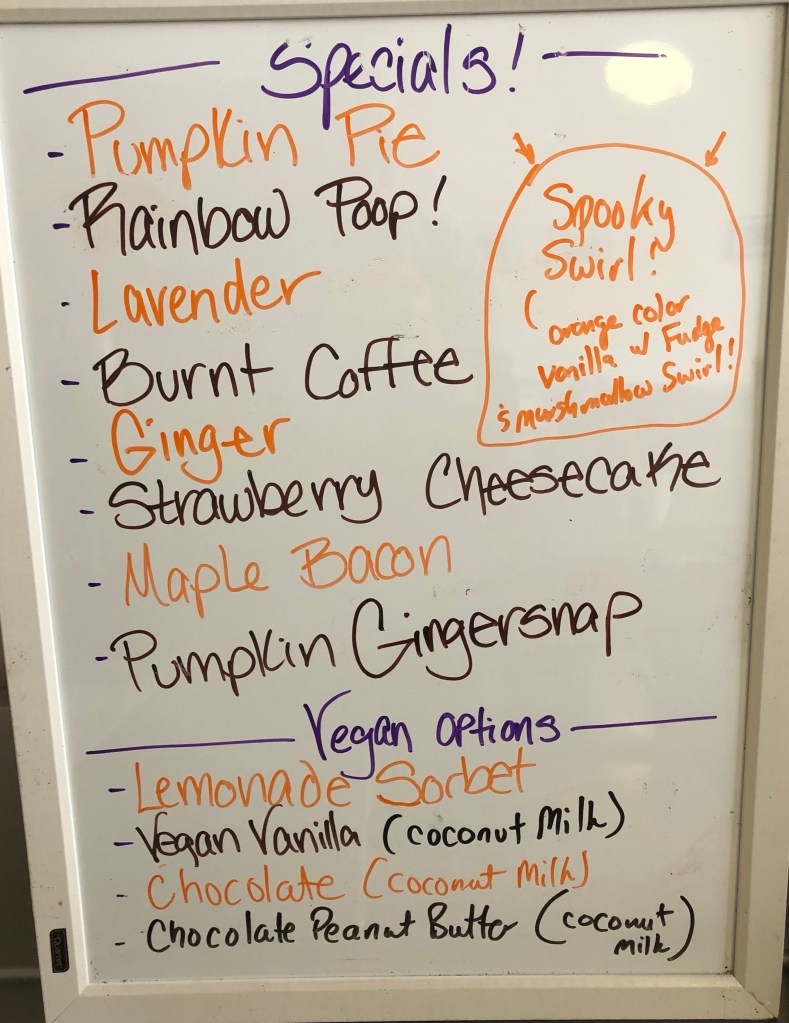 Specials!
- Pumpkin Pie
- Rainbow Poop!
- Lavender
- Burnt Coffee
- Ginger
- Strawberry Cheesecake
- Maple Bacon
- Pumpkin Gingersnap
Spooky
Swirl!
(orange color
vanilla w/ Fudge
& marshmallow Swirl!
Vegan Options
- Lemonade Sorbet
- Vegan Vanilla (coconut Milk)
- Chocolate (coconut Milk)
- Chocolate Peanut Butter (coconut
milk)
Quartet